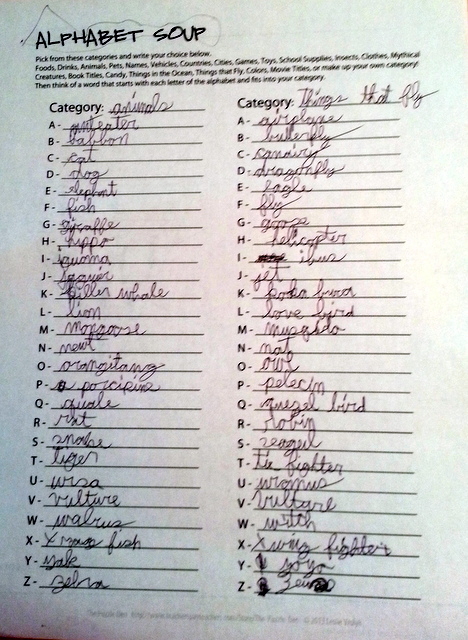 ALPHABET SOUP
Pick from these categories and write your choice below.
Foods, Drinks, Animals, Pets, Names, Vehicles, Countries, Cities, Games, Toys, School Supplies, Insects, Clothes, Mythical
Creatures, Book Titles, Candy, Things in the Ocean, Things that Fly, Colors, Movie Titles, or make up your own category!
Then think of a word that starts with each letter of the alphabet and fits into your category.
Category: animals
A- anteater
B- babbon
C- cat
D- dog
E- elephant
F- fish
G- giraffe
H- hippo
I- iguana
J- jaguar
K- killer whale
L- lion
M- mongoose
N- newt
O- orangitang
P- porcipine
Q- quale
R- rat
S- snake
T- tiger
U- ursa
V- vulture
W- walrus
X- X ray fish
Y- yak
Z- zebra
Category: Things that fly
A- airplane
B- buterfly
C- canairy
D- dragonfly
E- eagle
F- fly
G- goose
H- helicopter
I- ibus
J- jet
K- kooka burra
L- love bird
M- musqado
N- nat
O- owl
P- pelecin
Q- quezel bird
R- robin
S- seagull
T- tie fighter
U- uranus
V- vulture
W- witch
X- X wing fighter
Y- yoyo
Z-